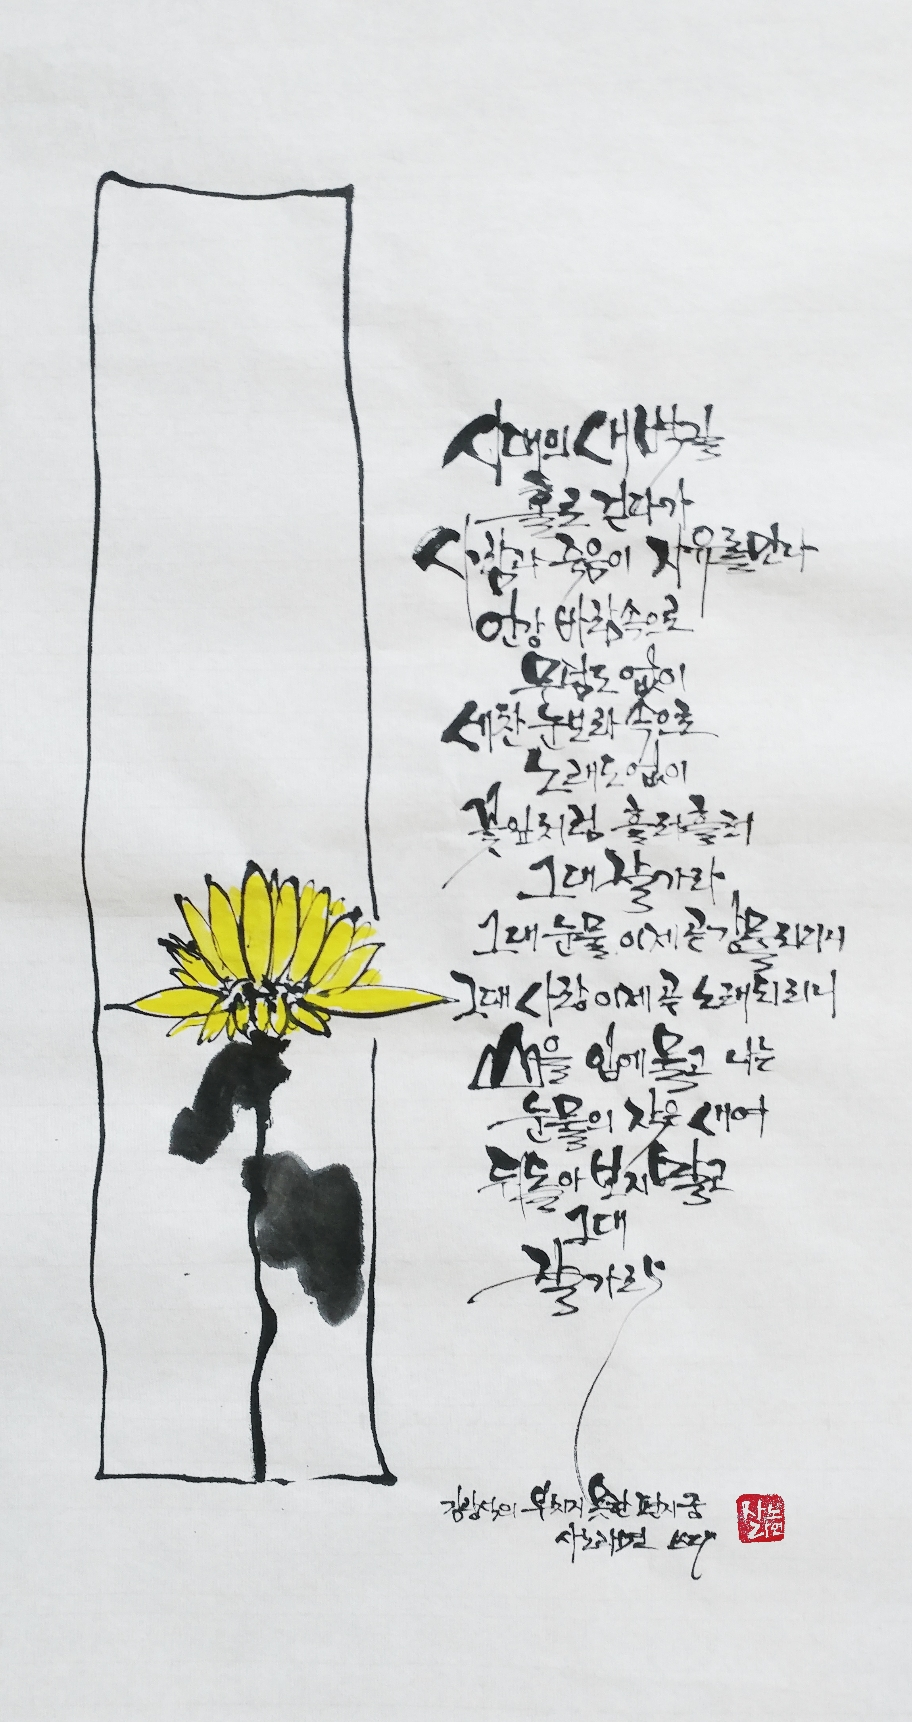 시대의 새벽길
홀로 걷다가
사랑과 죽음이 자유를 만나
언강 바람 속으로
무덤도 없이
세찬 눈보라 속으로
노래도 없이
꽃잎처럼 흘러흘러
그대 잘가라
그대 눈물 이제 곧 강물 되리니
그대 사랑 이제 곧 노래되리니
산을 입에 물고 나는
눈물의 작은 새여
뒤돌아 보지 말고
그대
잘가라
김광석의 부치지 못한 편지 중
사노라면 쓰다
사노
라면